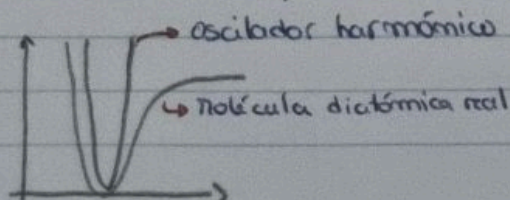 oscilador harmómico
molécula diatómica real